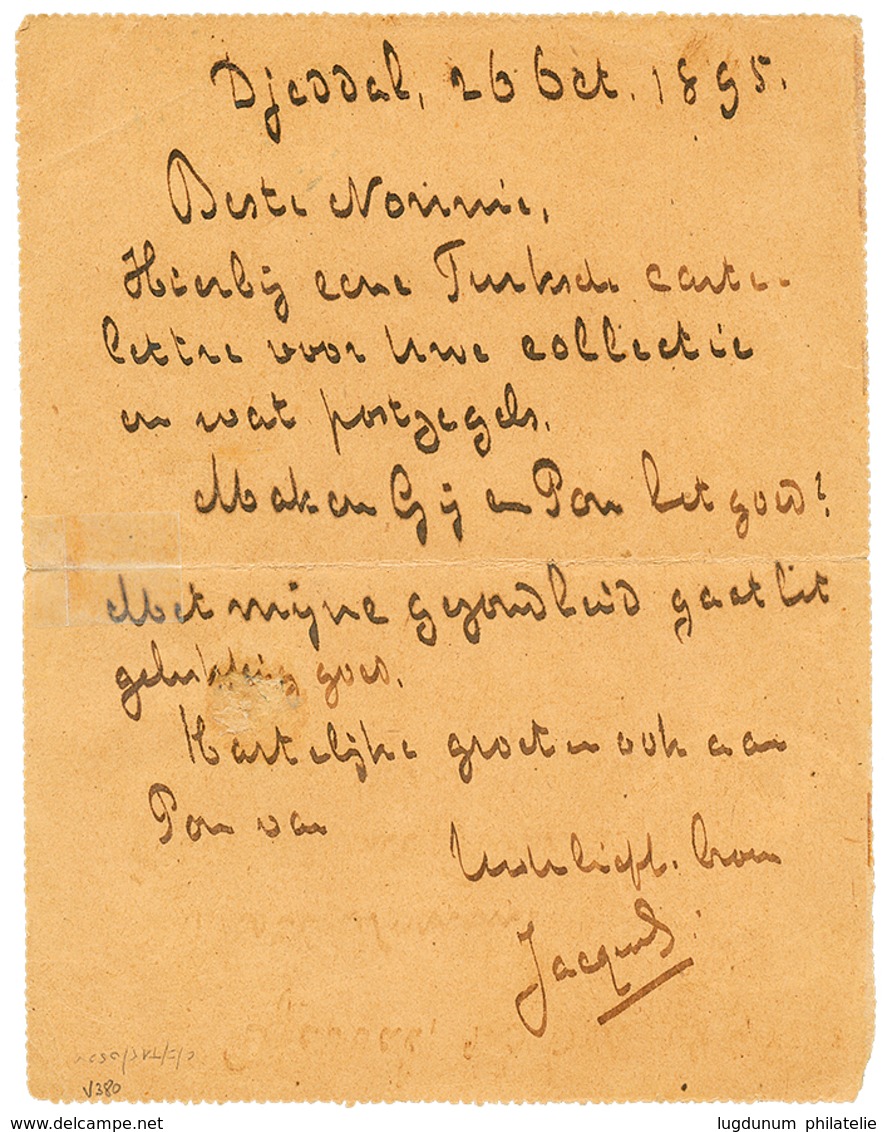 Djeddah, 26 Oct. 1895.
Beste Nonnie,
Hierbij eene Turksche carte-
lettre voor Uwe collectie
en wat postzegels.
Maken Gij en Pon het goed?
Met mijne gezondheid gaat het
gelukkig goed.
Hartelijke groeten ook aan
Pon van
Uwe liefh. broer
Jacques.
V380
delcampe.net
lugdunum philatelie